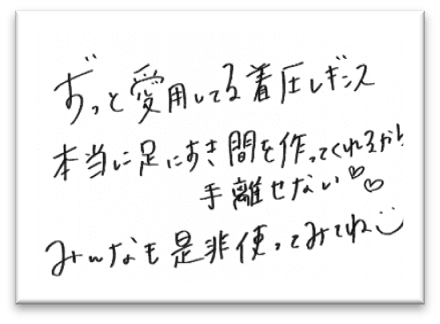 ずっと愛用してる着圧レギンス
本当に足にすき間を作ってくれるから
手離せない♡♡
みんなも是非使ってみてね